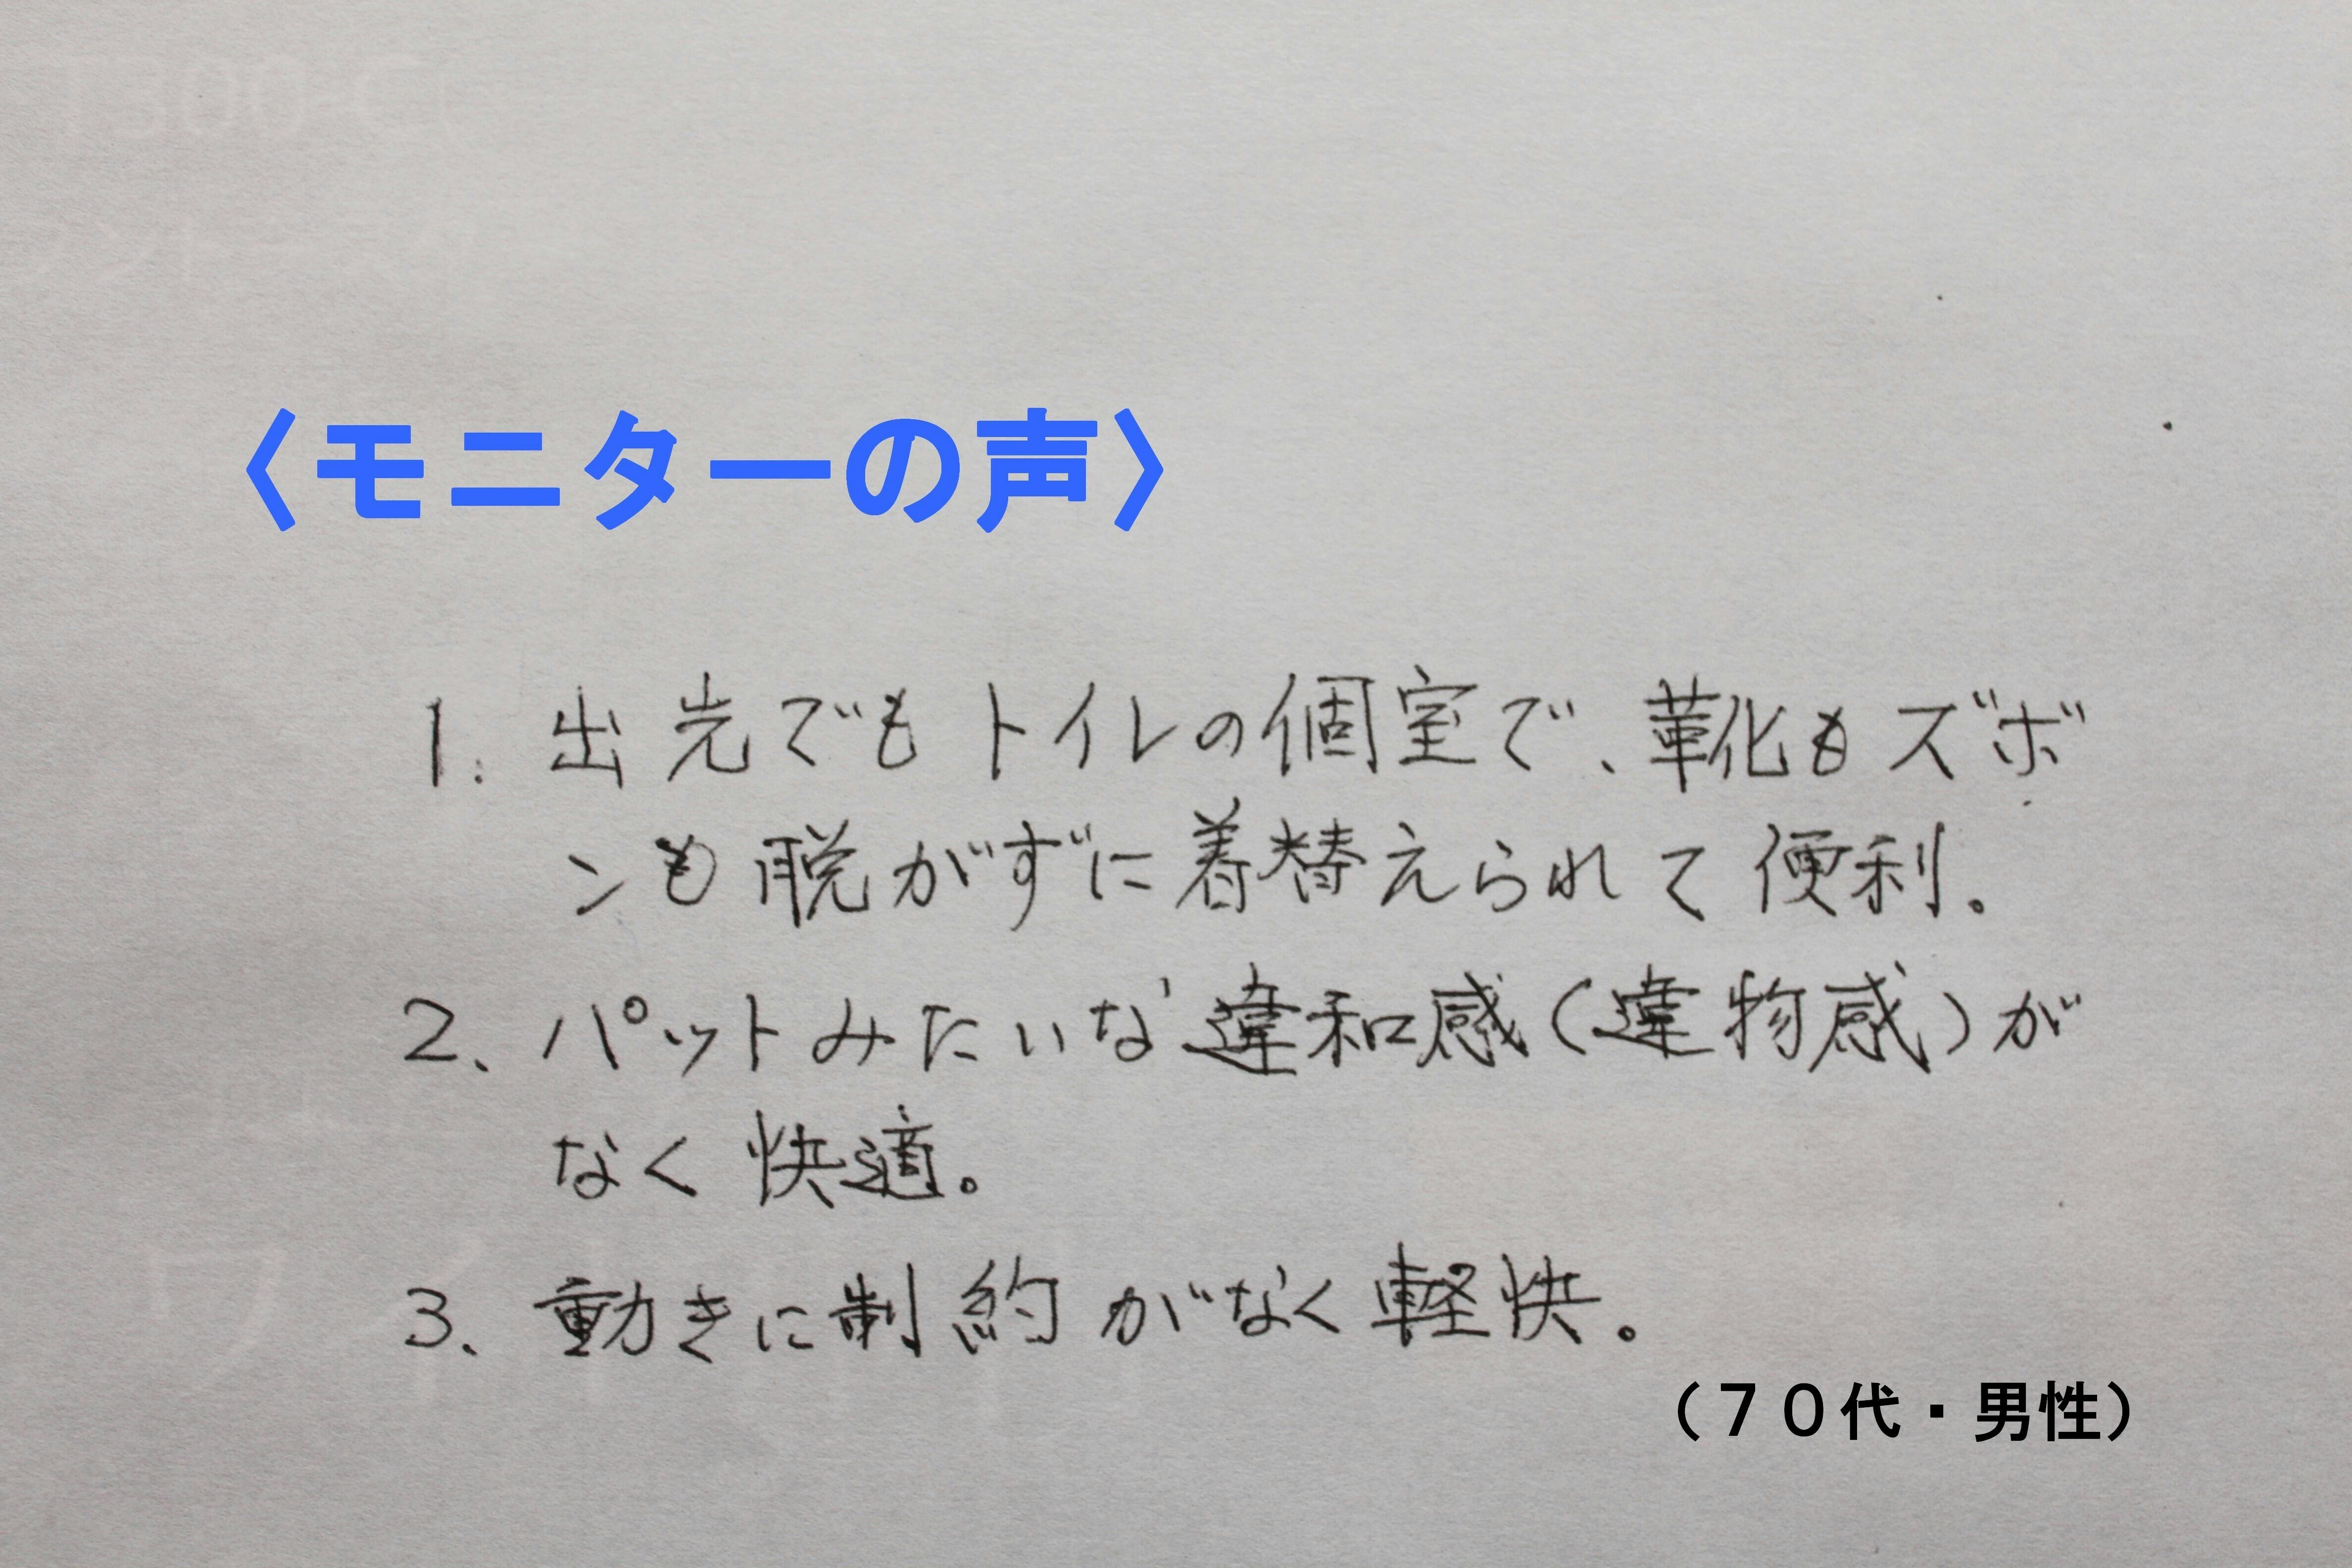 〈モニターの声〉
1. 出先でもトイレの個室で、靴もズボ
ンも脱がずに着替えられて便利。
2、パットみたいな違和感(違物感)が
なく快適。
3、動きに制約がなく軽快。
（７０代・男性）